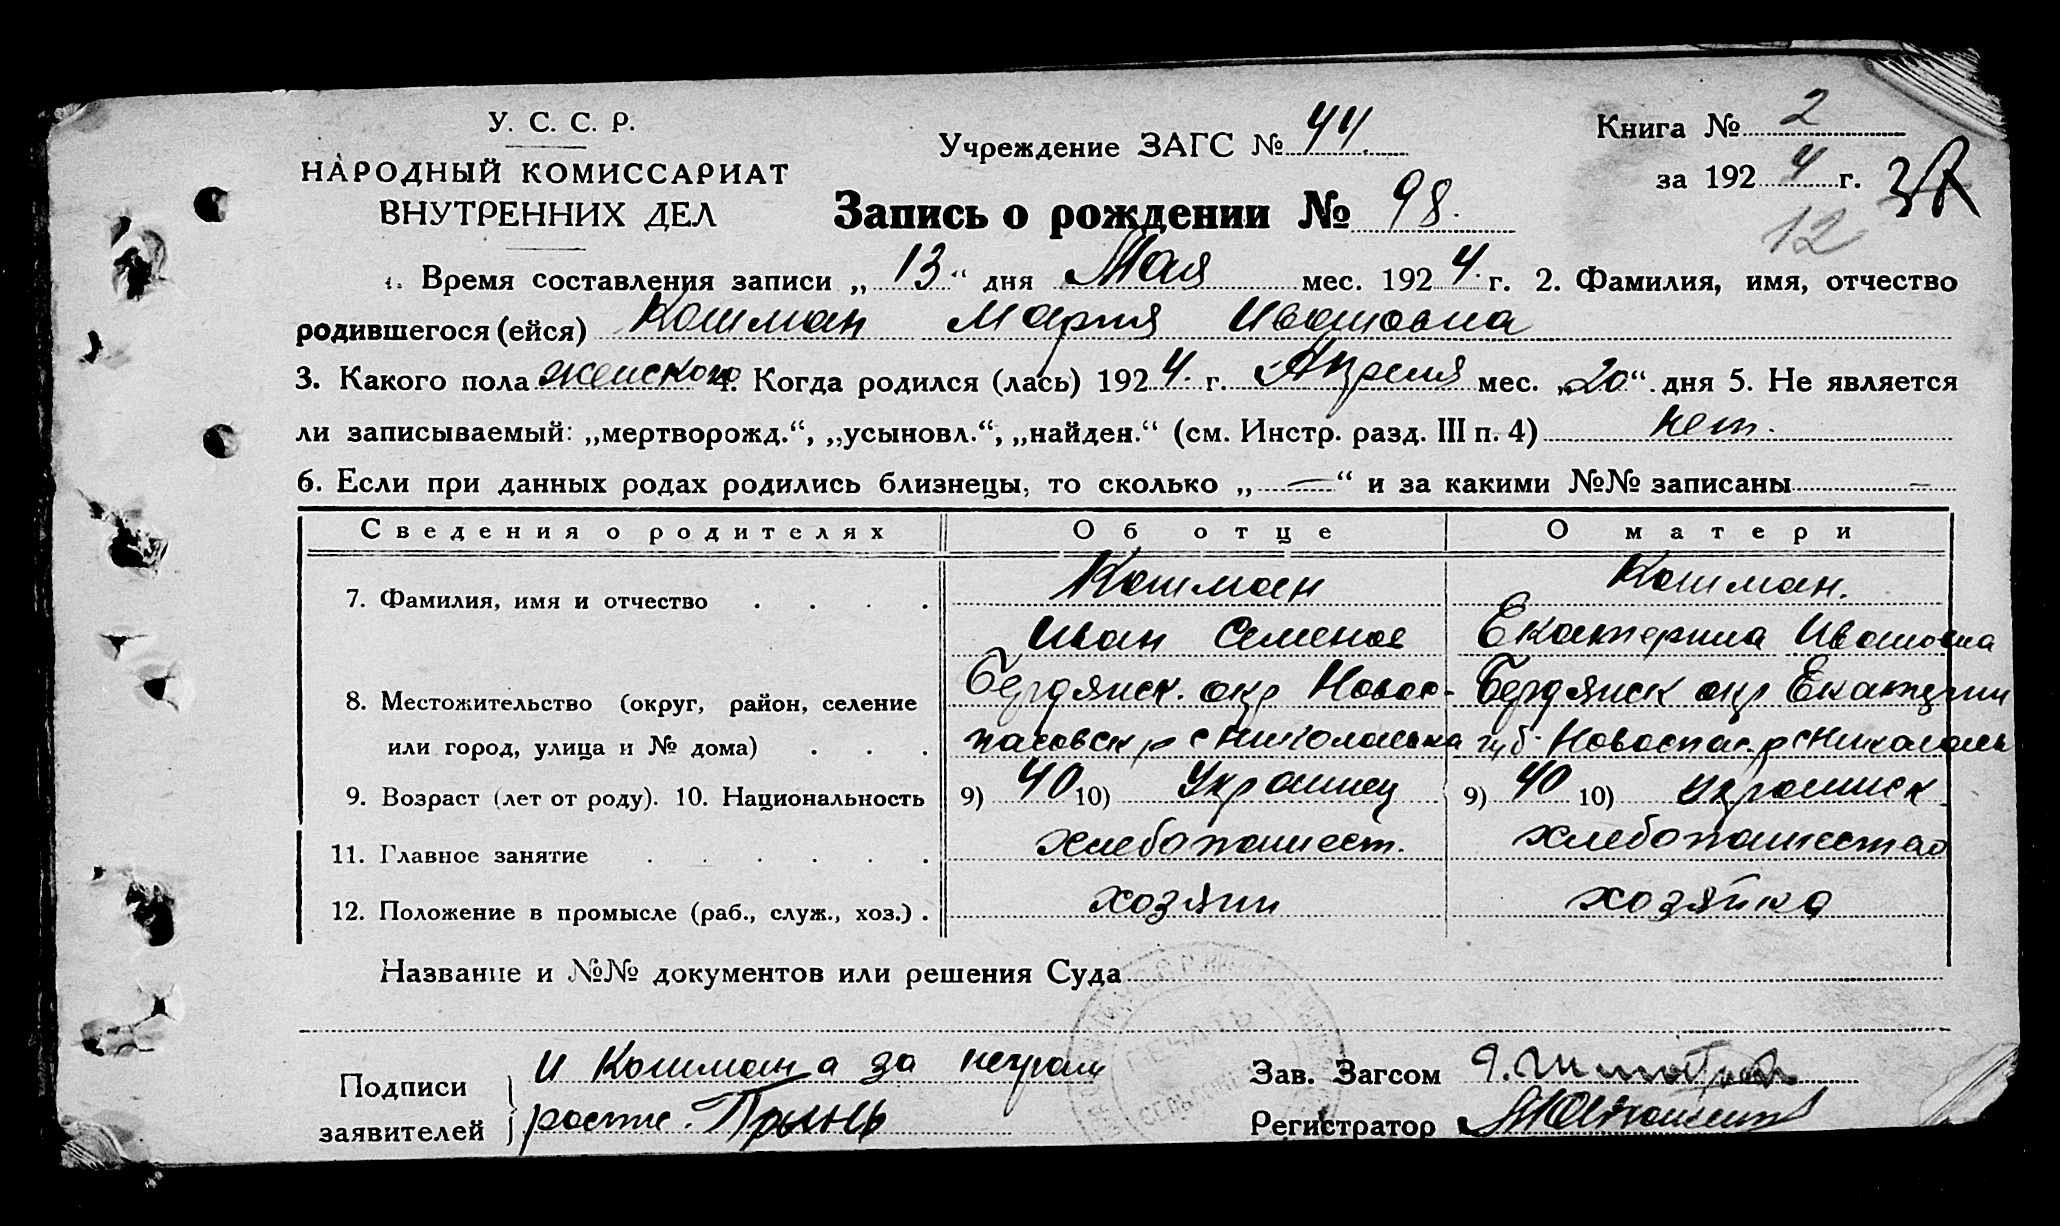 У. С. С. Р.
НАРОДНЫЙ КОМИССАРИАТ
ВНУТРЕННИХ ДЕЛ
Учреждение ЗАГС № 44.
Книга № 2
за 1924 г.
12
Запись о рождении № 98.
1. Время составления записи „13“ дня Мая мес. 1924 г. 2. Фамилия, имя, отчество
родившегося (ейся) Кошман Мария Ивановна
3. Какого пола женского 4. Когда родился (лась) 1924. г. Апреля мес. „20“ дня 5. Не является
ли записываемый: „мертворожд.“, „усыновл.“, „найден.“ (см. Инстр. разд. III п. 4) нет.
6. Если при данных родах родились близнецы, то сколько „—“ и за какими №№ записаны —
Сведения о родителях Об отце О матери
7. Фамилия, имя и отчество Кошман Кошман.
Иван Семенов Екатерина Ивановна
8. Местожительство (округ, район, селение Бердянск. окр Новос- Бердянск окр Екатерин
или город, улица и № дома) пасовск р с Николаевка губ. Новоспас. р с Николаевк
9. Возраст (лет от роду). 10. Национальность 9) 40 10) Украинец 9) 40 10) Украинск
11. Главное занятие хлебопашест. хлебопашество
12. Положение в промысле (раб., служ., хоз.) хозяин хозяйка
Название и №№ документов или решения Суда
Подписи И Кошман а за неграм
заявителей ростис.
Зав. Загсом
Регистратор
ПЕЧАТЬ